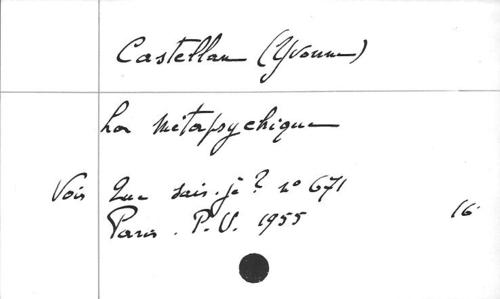 Castellan (Yvonne)
La Métapsychique
Voir Que sais-je? n° 671
Paris. P.U. 1955 16